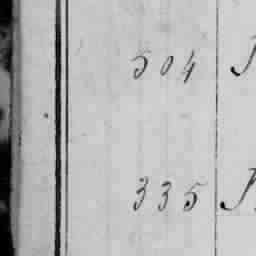 504
335